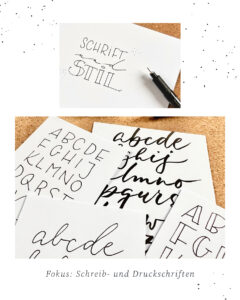 SCHRIFT
und
STIL
ABCDE
FGHIJ
KLMNO
PQRST
abcde
fghij
klmno
pqurs
abcde
Fokus: Schreib- und Druckschriften